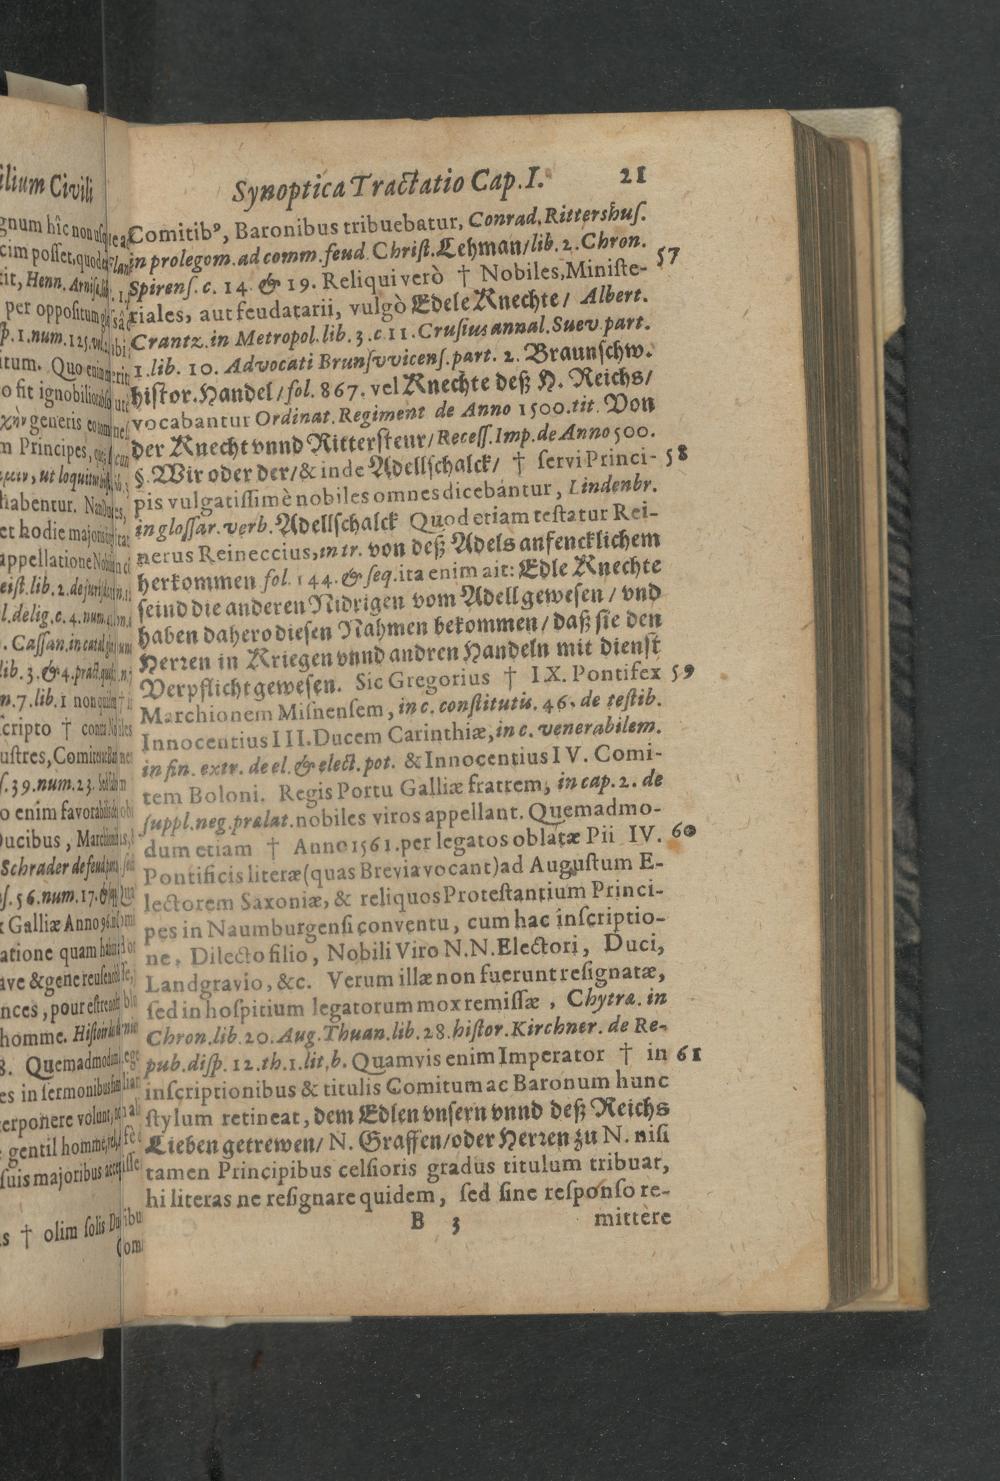 Synoptica Tractatio Cap. I. 21
Comitibꝰ, Baronibus tribuebatur, Conrad. Rittershuſ.
in prolegom. ad comm. feud. Chriſt. Lehman / lib. 2. Chron.
Spirenſ. c. 14. & 19. Reliqui verò † Nobiles, Miniſte- 57
riales, aut feudatarii, vulgò Edele Knechte / Albert.
Crantz. in Metropol. lib. 3. c. 11. Cruſius annal. Suev. part.
1. lib. 10. Advocati Brunſvvicenſ. part. 2. Braunſchw.
hiſtor. Handel / fol. 867. vel Knechte deß H. Reichs /
vocabantur Ordinat. Regiment de Anno 1500. tit. Von
der Knecht vnnd Ritterſteur / Receſſ. Imp. de Anno 500.
§. Wir oder der / & inde Adellſchalck / † ſervi Princi- 58
pis vulgatiſſimè nobiles omnes dicebantur, Lindenbr.
in gloſſar. verb. Adellſchalck Quod etiam teſtatur Rei-
nerus Reineccius, in tr. von deß Adels anfencklichem
herkommen fol. 144. & ſeq. ita enim ait: Edle Knechte
ſeind die anderen Nidrigen vom Adell geweſen / vnd
haben dahero dieſen Nahmen bekommen / daß ſie den
Herren in Kriegen vnnd andren Handeln mit dienſt
Verpflicht geweſen. Sic Gregorius † IX. Pontifex 59
Marchionem Miſnenſem, in c. conſtitutis. 46. de teſtib.
Innocentius III. Ducem Carinthiæ, in c. venerabilem.
in fin. extr. de el. & elect. pot. & Innocentius IV. Comi-
tem Boloni. Regis Portu Galliæ fratrem, in cap. 2. de
ſuppl. neg. prælat. nobiles viros appellant. Quemadmo-
dum etiam † Anno 1561. per legatos oblatæ Pii IV. 60
Pontificis literæ (quas Brevia vocant) ad Auguſtum E-
lectorem Saxoniæ, & reliquos Proteſtantium Princi-
pes in Naumburgenſi conventu, cum hac inſcriptio-
ne, Dilecto filio, Nobili Viro N. N. Electori, Duci,
Landgravio, &c. Verum illæ non fuerunt reſignatæ,
ſed in hoſpitium legatorum mox remiſſæ, Chytræ. in
Chron. lib. 20. Aug. Thuan. lib. 28. hiſtor. Kirchner. de Re-
pub. diſp. 12. th. 1. lit. b. Quamvis enim Imperator † in 61
inſcriptionibus & titulis Comitum ac Baronum hunc
ſtylum retineat, dem Edlen vnſern vnnd deß Reichs
Lieben getrewen / N. Graffen / oder Herren zu N. niſi
tamen Principibus celſioris gradus titulum tribuat,
hi literas ne reſignare quidem, ſed ſine reſponſo re-
B 3 mittere